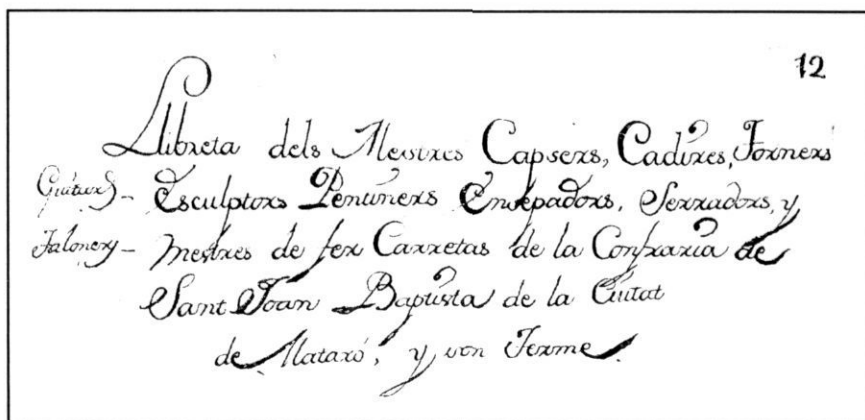 12
Llibreta dels Mestres Capsers, Cadires, Torners
Guitarrs - Esculptors Pentiners Envepadors, Serradors, y
Talonery - mestres de fer Carretas de la Confraria de
Sant Joan Baptista de la Ciutat
de Mataró, y son Terme